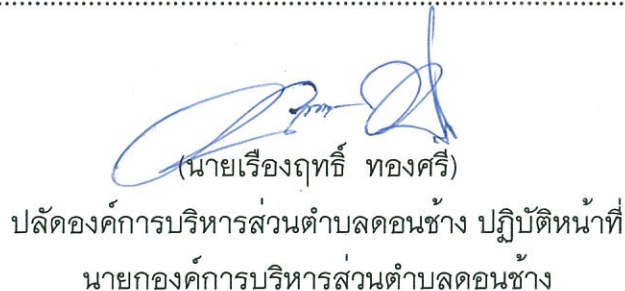 (นายเรืองฤทธิ์ ทองศรี)
ปลัดองค์การบริหารส่วนตำบลดอนช้าง ปฏิบัติหน้าที่
นายกองค์การบริหารส่วนตำบลดอนช้าง